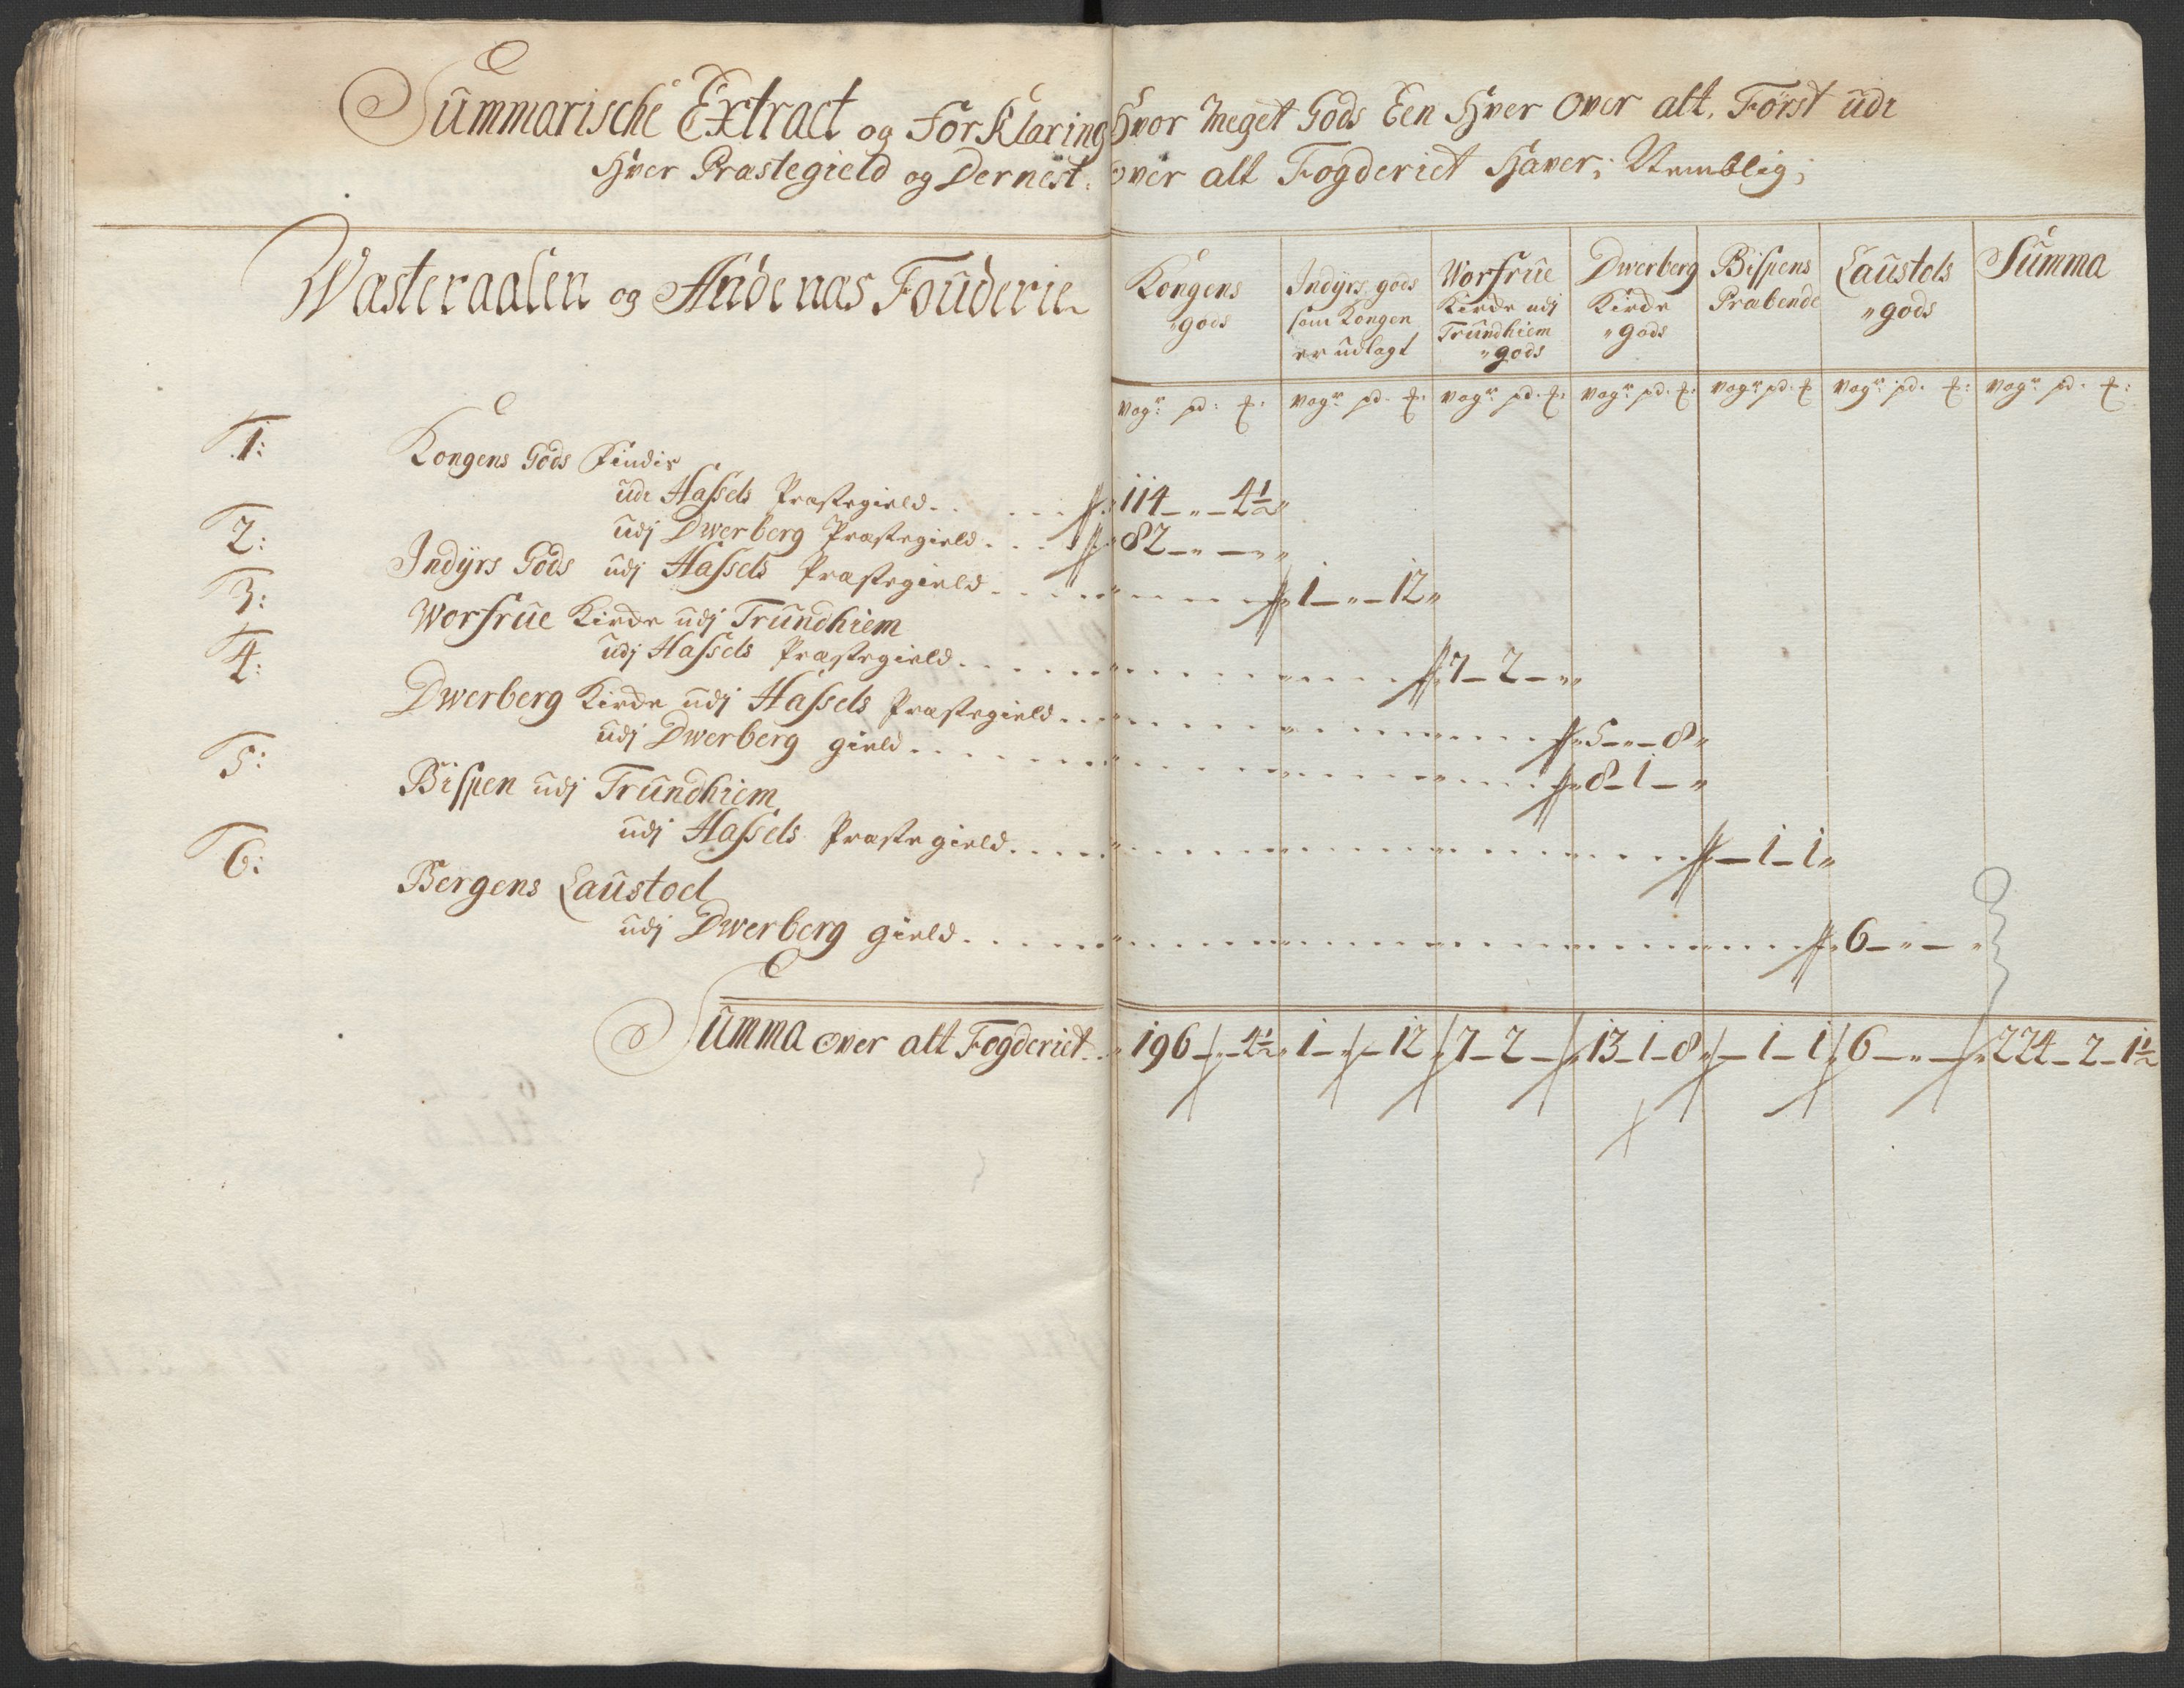 Summarische Extract og Forklaring Hvor Meget Gods Een Hver Over alt, Först udi
Hver Præstegield og Dernest over alt Fogderiet Haver; Nemblig;
Wæsteraalen og Andenæs Fouderie
Kongens gods
Indÿrs gods som Kongen er udlagt
Worfrue Kircke udj Trundhiem gods
Dwerberg Kircke gods
Bispens Præbende
Laustols gods
Summa
vogr: pd: ℔: vogr: pd: ℔: vogr: pd: ℔: vogr: pd: ℔: vogr: pd: ℔: vogr: pd: ℔: vogr: pd: ℔:
1: Kongens Gods Findis
udi Hassels Præstegield 114 – „ – 4½
udj Dwerberg Præstegield 82 – „ – „
2: Indÿrs Gods udj Hassels Præstegield 1 – „ – 12
3: Worfrue Kircke udj Trundhiem
udj Hassels Præstegield 7 – 2 – „
4: Dwerberg Kircke udj Hassels Præstegield 5 – „ – 8
udj Dwerberg gield 8 – 1 – „
5: Bispen udj Trundhiem
udj Hassels Præstegield – 1 – 1
6: Bergens Laustoel
udj Dwerberg gield 6 – „ – „
Summa over alt Fogderiet 196 – „ – 4½ 1 – „ – 12 7 – 2 – „ 13 – 1 – 8 – 1 – 1 6 – „ – „ 224 – 2 – 1½